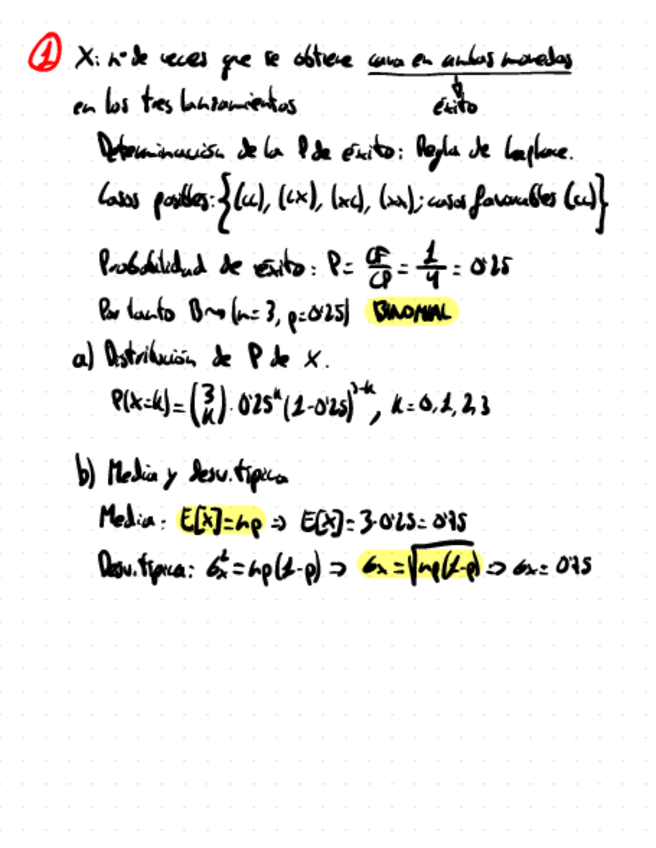 1 X: nº de veces que se obtiene cara en ambas monedas
en los tres lanzamientos éxito
Determinación de la P de éxito: Regla de Laplace.
Casos posibles: {(cc), (cx), (xc), (xx); casos favorables (cc)}
Probabilidad de éxito: P = CF/CP = 1/4 = 0'25
Por tanto B~(n=3, p=0'25) BINOMIAL
a) Distribución de P de X.
P(X=k) = (3 k) · 0'25^k (1-0'25)^3-k, k=0,1,2,3
b) Media y desv. típica
Media: E[X]=np ⇒ E[X]=3·0'25=0'75
Desv. típica: σx²=np(1-p) ⇒ σx=√np(1-p) ⇒ σx=0'75